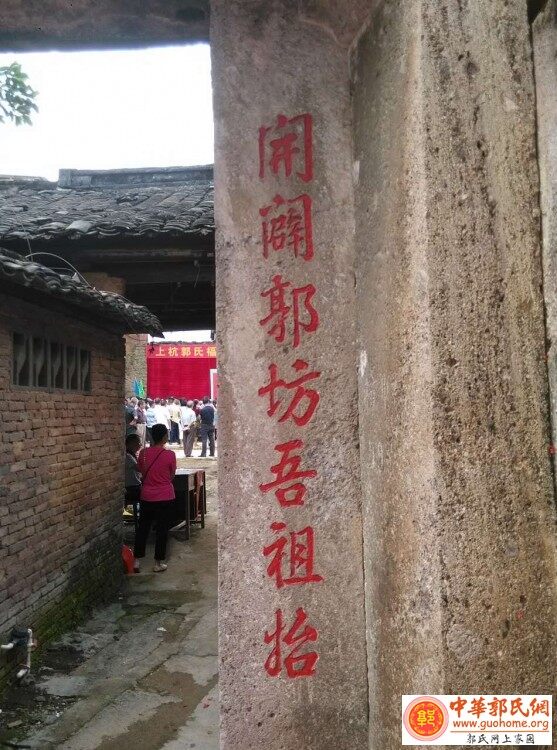 開闢郭坊吾祖始
上杭郭氏福
中華郭氏網
www.guohome.org
郭氏网上家园
郭